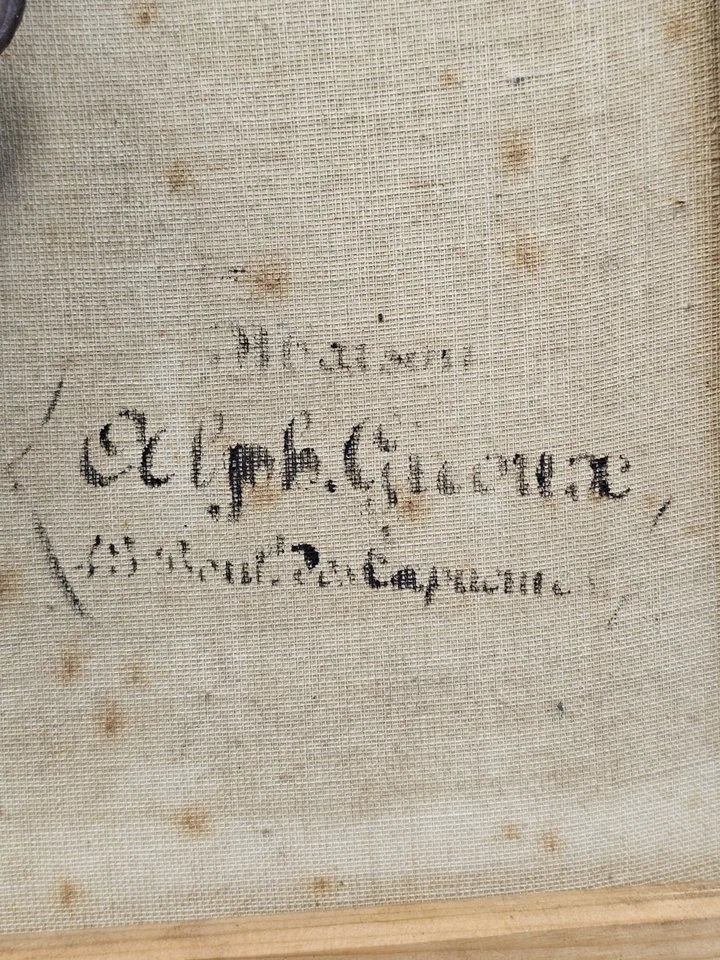 Maison
Alph. Giroux
43 Boul.t des Capucines